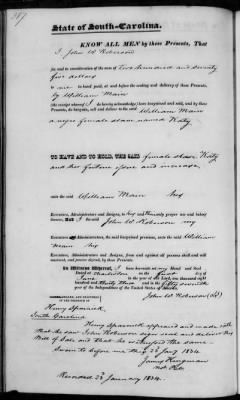 317
State of South-Carolina.
KNOW ALL MEN by these Presents, That
I John W Roberson
for and in consideration of the sum of Two Hundred and seventy
five dollars
to me in hand paid, at and before the sealing and delivery of these Presents,
by William Main
(the receipt whereof I do hereby acknowledge) have bargained and sold, and by these
Presents, do bargain, sell and deliver to the said William Main
a negro female slave named Katy
TO HAVE AND TO HOLD, THE SAID female slave Katy
and her future issue and increase
unto the said William Main his
Executors, Administrators and Assigns, to and their only proper use and behoof
forever. And I the said John W Roberson my
Executors and Administrators, the said bargained premises, unto the said William
Main his
Executors, Administrators and Assigns, from and against all persons shall and will
warrant, and forever defend, by these Presents.
In Witness Whereof, I have hereunto set my Hand and Seal
Dated at Charleston on the first day of
in the year of our Lord, one thousand eight
hundred and thirty three and in the fifty seventh
year of the Independence of the United States of America.
SIGNED, SEALED, AND DELIVERED
IN THE PRESENCE OF
John W Roberson (LS)
Henry
South Carolina
Henry appeared and made oath
that he saw John Roberson sign seal and deliver this
Bill of Sale and that he witnessed the same
Sworn to before me this 23 Jany 1834.
James
Not Pub
Recorded 23 January 1834.